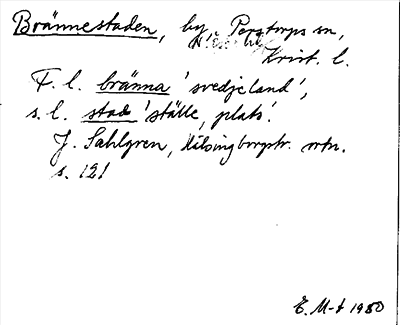 Brännestaden, by, Perstorps sn,
Krist. l.
F. l. bränna 'svedjeland',
s. l. stad 'ställe, plats'.
J. Sahlgren, Hälsingborgstr. ortn.
s. 121
E. M-t 1980